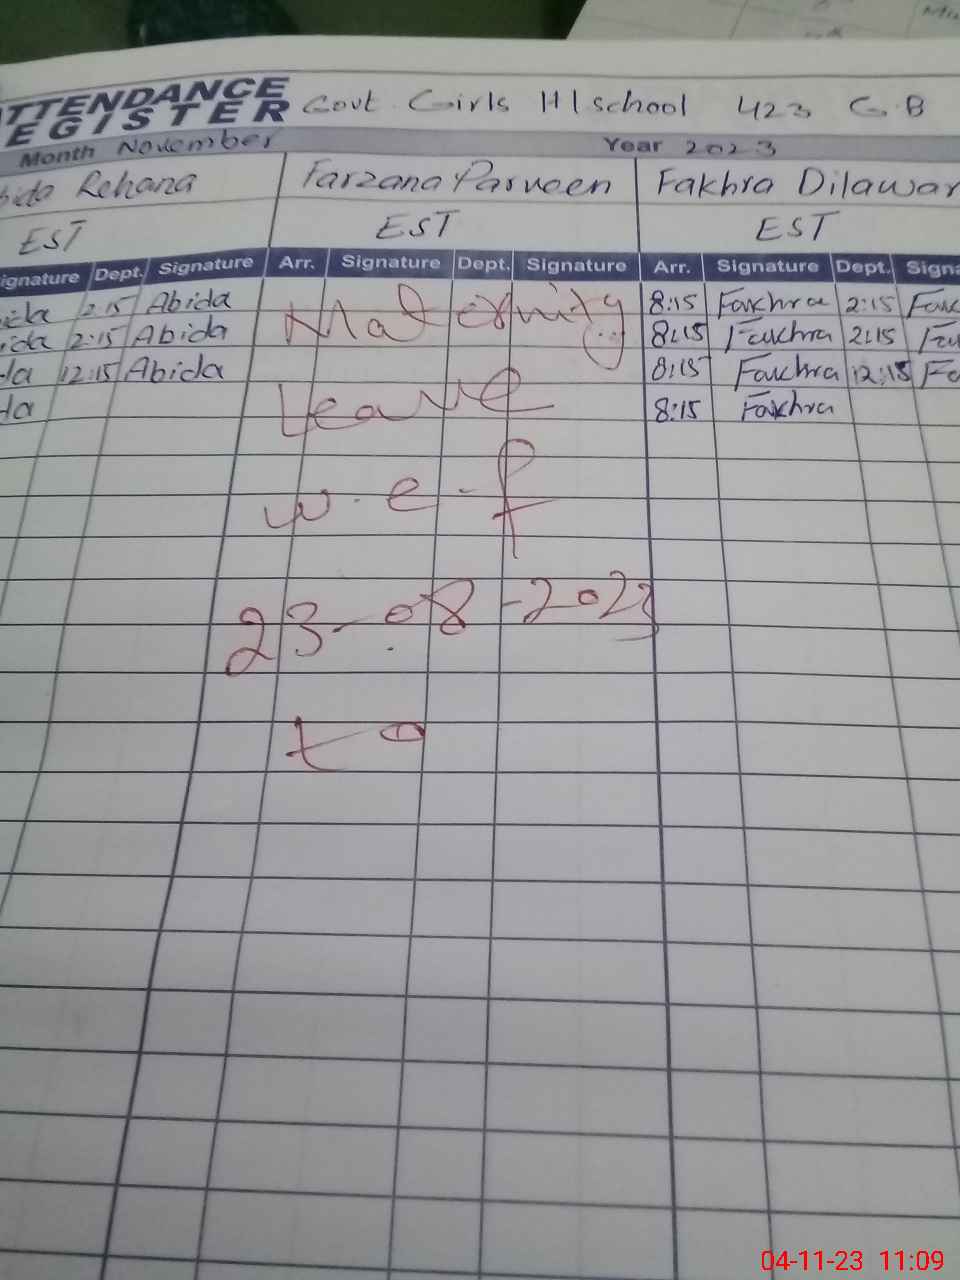 ATTENDANCE
REGISTER
Govt. Girls H/school 423 G.B
Month November Year 2023
Rehana Farzana Parveen Fakhra Dilawar
EST EST EST
Signature Dept. Signature Arr. Signature Dept. Signature Arr. Signature Dept.
2:15 Abida 8:15 Fakhra 2:15
2:15 Abida 8:15 Fakhra 2:15
12:15 Abida 8:15 Fakhra 12:15
8:15 Fakhra
Maternity
Leave
w.e.f
23-08-2023
to
04-11-23 11:09